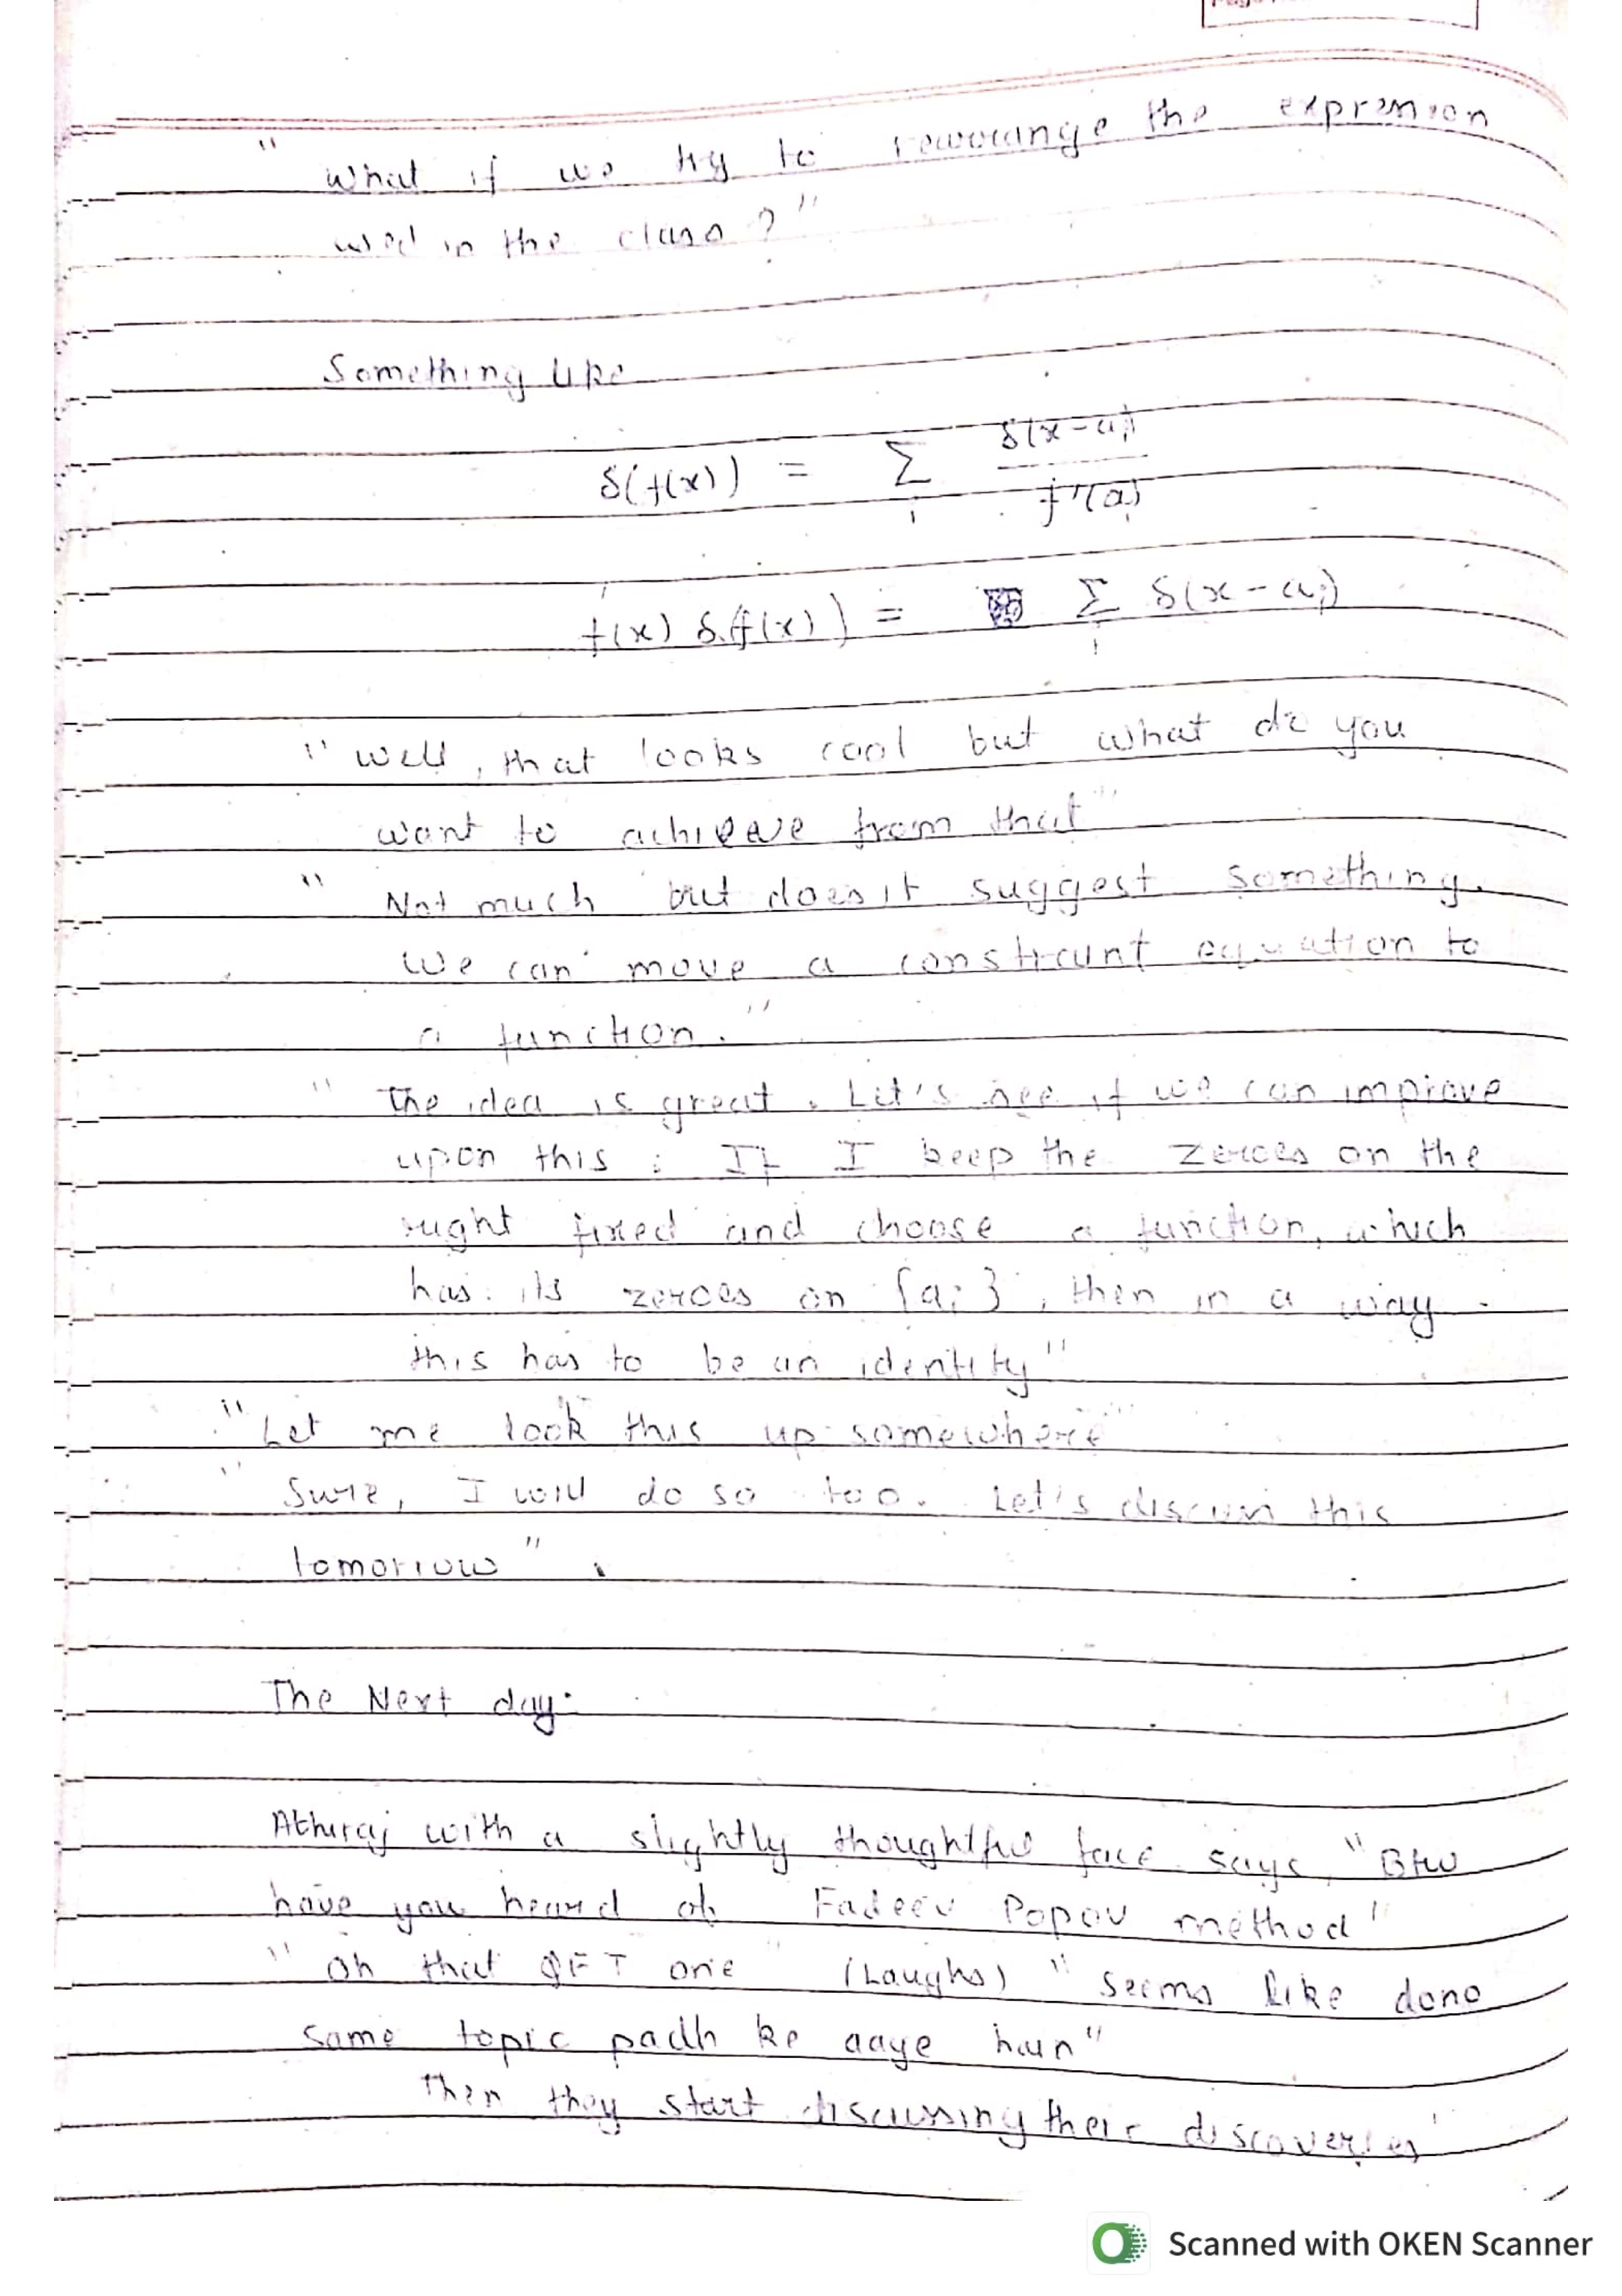 " What if we try to rearrange the expression
used in the class ? "
Something like
δ(f(x)) = Σ_i δ(x-a_i) / f'(a_i)
f'(x) δ(f(x)) = Σ_i δ(x-a_i)
" Well, that looks cool but what do you
want to achieve from that "
" Not much but does it suggest something.
We can move a constraint equation to
a function. "
" The idea is great. Let's see if we can improve
upon this : If I keep the zeroes on the
right fixed and choose a function, which
has its zeroes on {a_i}, then in a way
this has to be an identity "
" Let me look this up somewhere "
" Sure, I will do so too. Let's discuss this
tomorrow " .
The Next day:
Athiraj with a slightly thoughtful face says, " Btw
have you heard of Fadeev Popov method "
" Oh that QFT one " (Laughs) " Seems like dono
same topic padh ke aaye hain "
Then they start discussing their discoveries
Scanned with OKEN Scanner